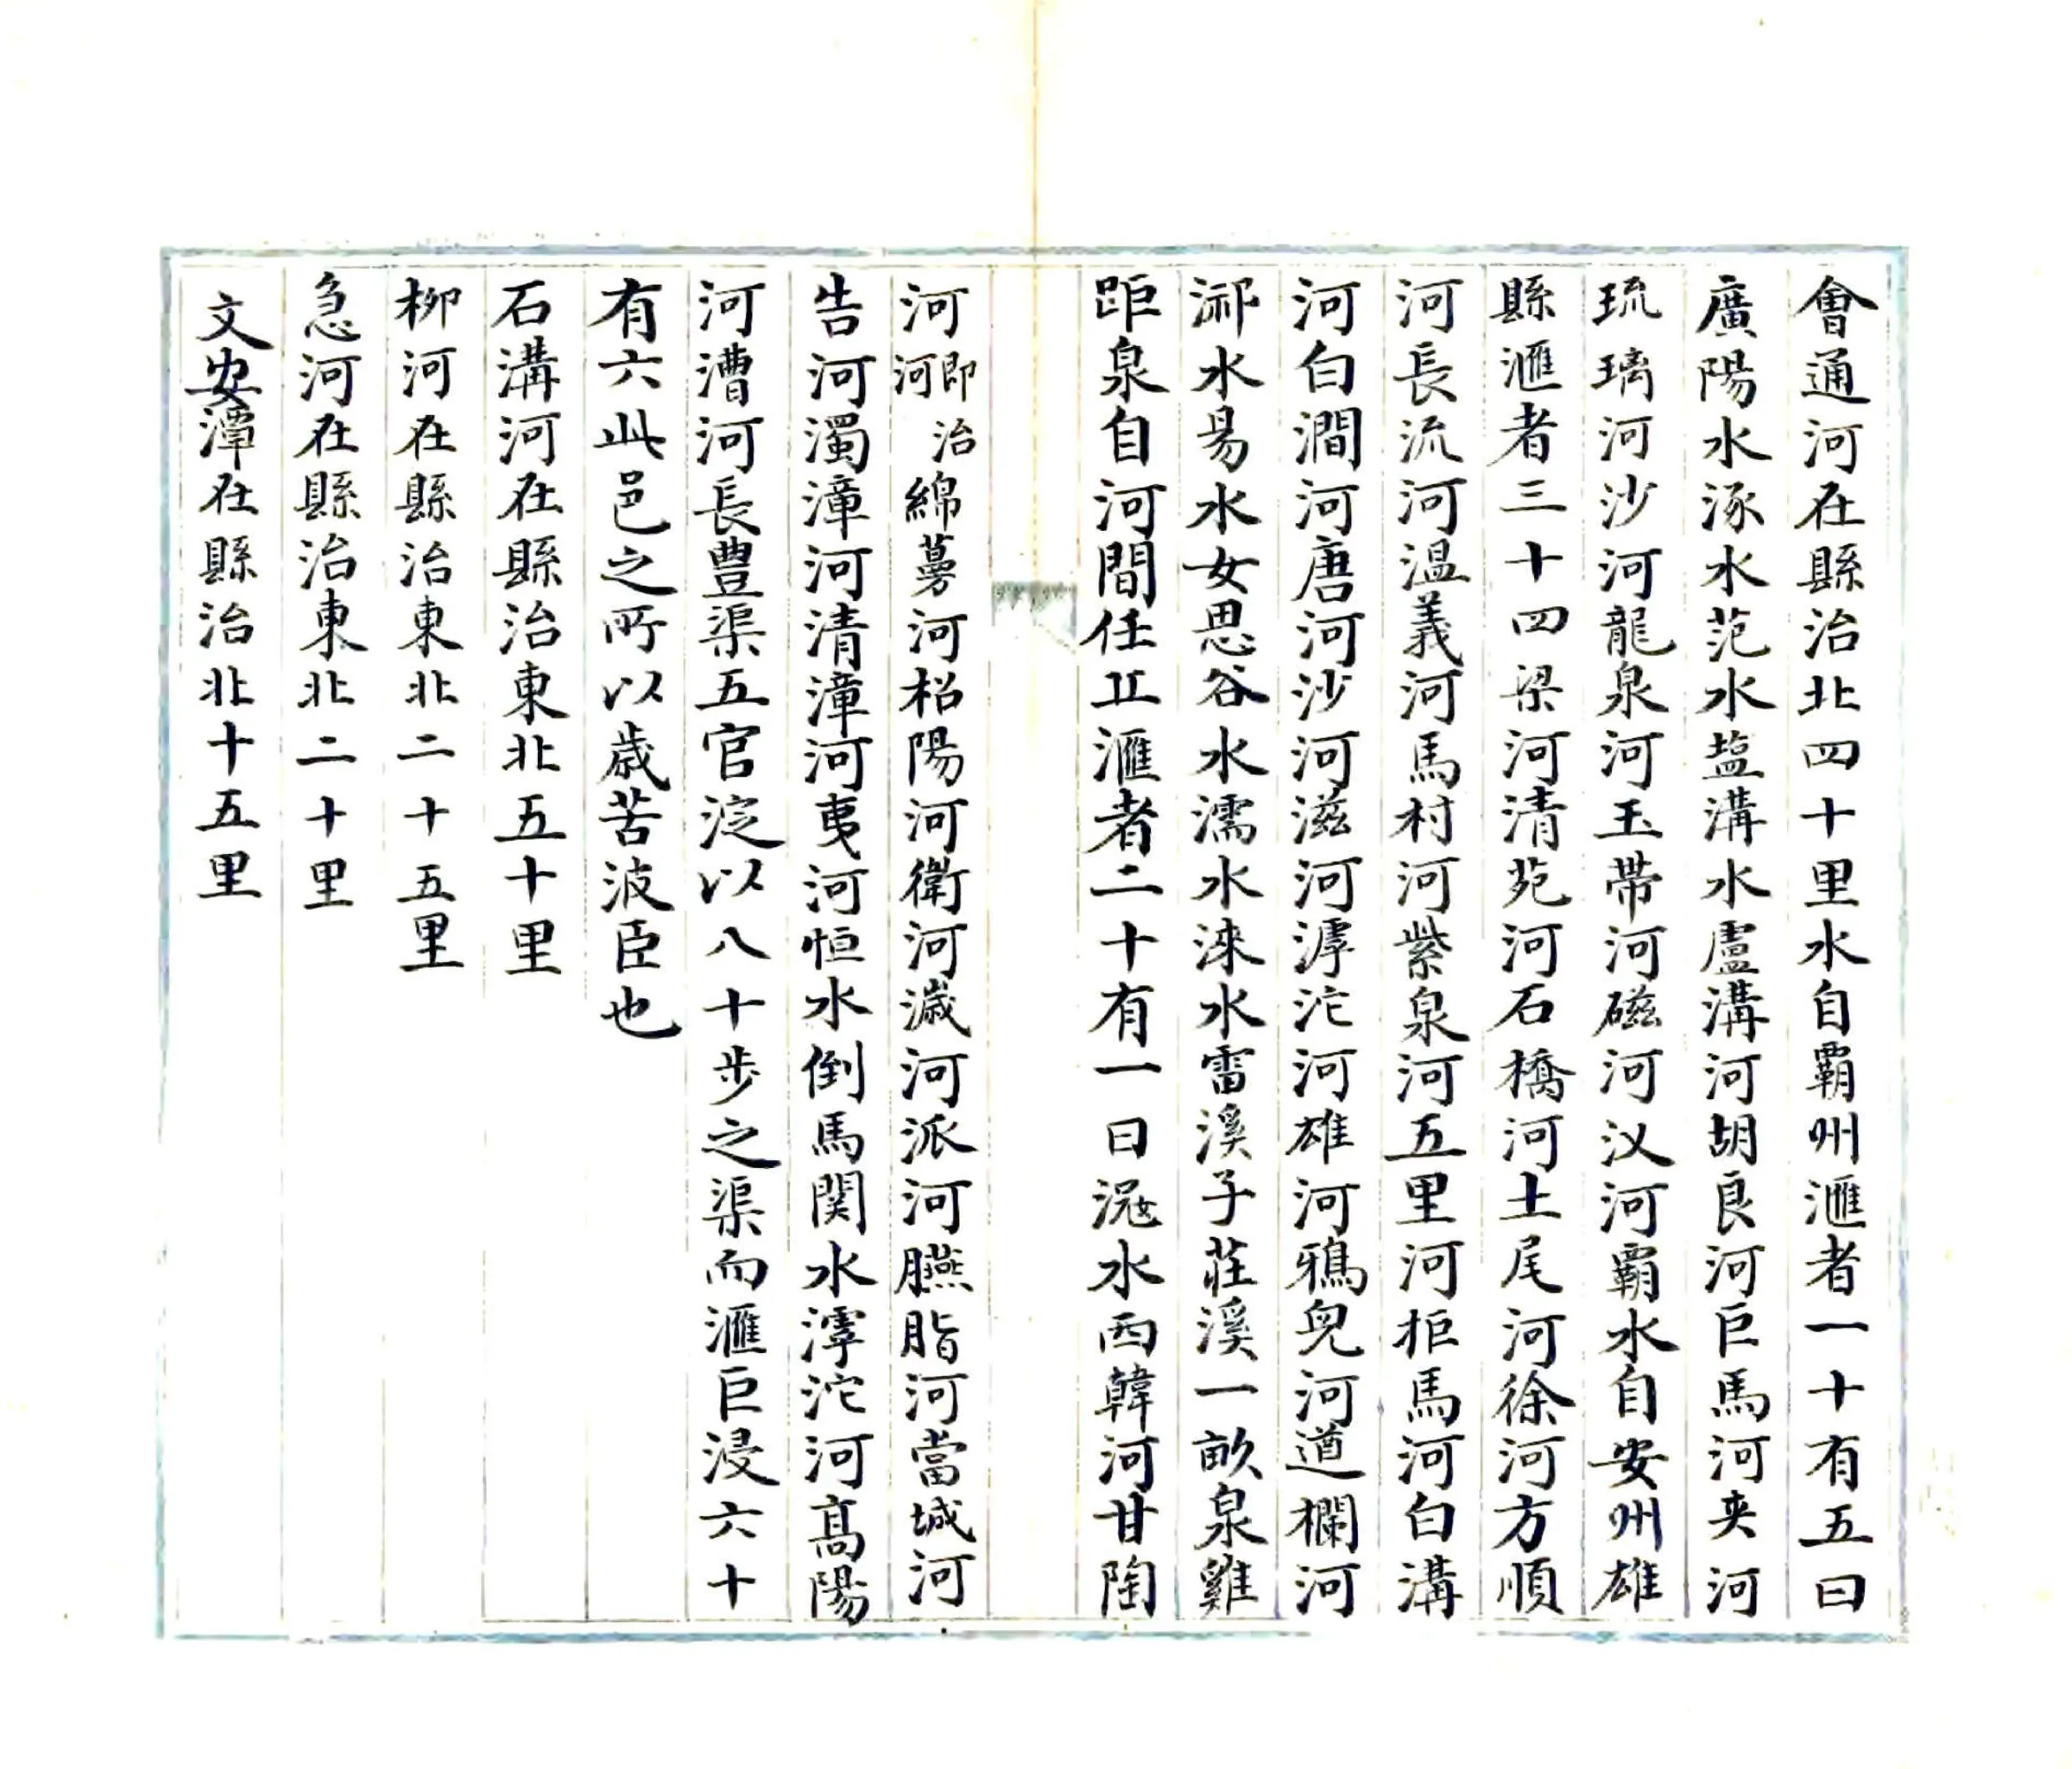 會通河在縣治北四十里水自霸州滙者一十有五曰
廣陽水涿水范水塩溝水盧溝河胡良河巨馬河夹河
琉璃河沙河龍泉河玉帶河磁河汊河霸水自安州雄
縣滙者三十四梁河清苑河石橋河土尾河徐河方順
河長流河温義河馬村河紫泉河五里河拒馬河白溝
河白澗河唐河沙河滋河滹沱河雄河鴉兒河道欄河
泖水易水女思谷水濡水淶水雷溪子莊溪一畝泉雞
距泉自河間任丘滙者二十有一曰涀水西韓河甘陶
河即治河綿蔓河柖陽河衛河濊河派河臙脂河當城河
告河濁漳河清漳河夷河恒水倒馬関水滹沱河髙陽
河漕河長豊渠五官淀以八十步之渠而滙巨浸六十
有六此邑之所以歲苦波臣也
石溝河在縣治東北五十里
柳河在縣治東北二十五里
急河在縣治東北二十里
文安潭在縣治北十五里